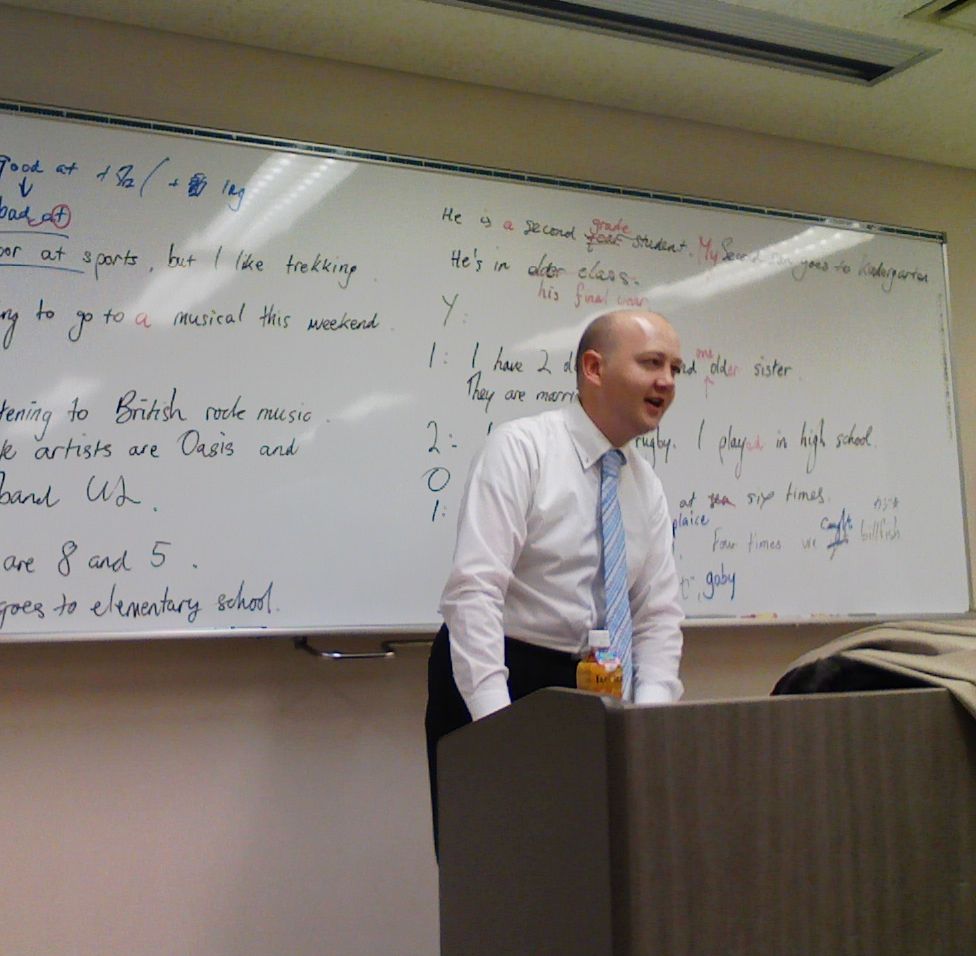 good at + 名 / + 動 ing
bad at
oor at sports, but I like trekking.
ng to go to a musical this weekend.
tening to British rock music.
k artists are Oasis and
band U2.
are 8 and 5.
goes to elementary school.
He is a second grade year student. My second son goes to kindergarten
He's in older class.
his final year
Y:
1: I have 2 d nd one older sister.
They are marri
2: I rugby. I played in high school.
0 at sea six times.
1: plaice
Four times we caught billfish カジキ
goby